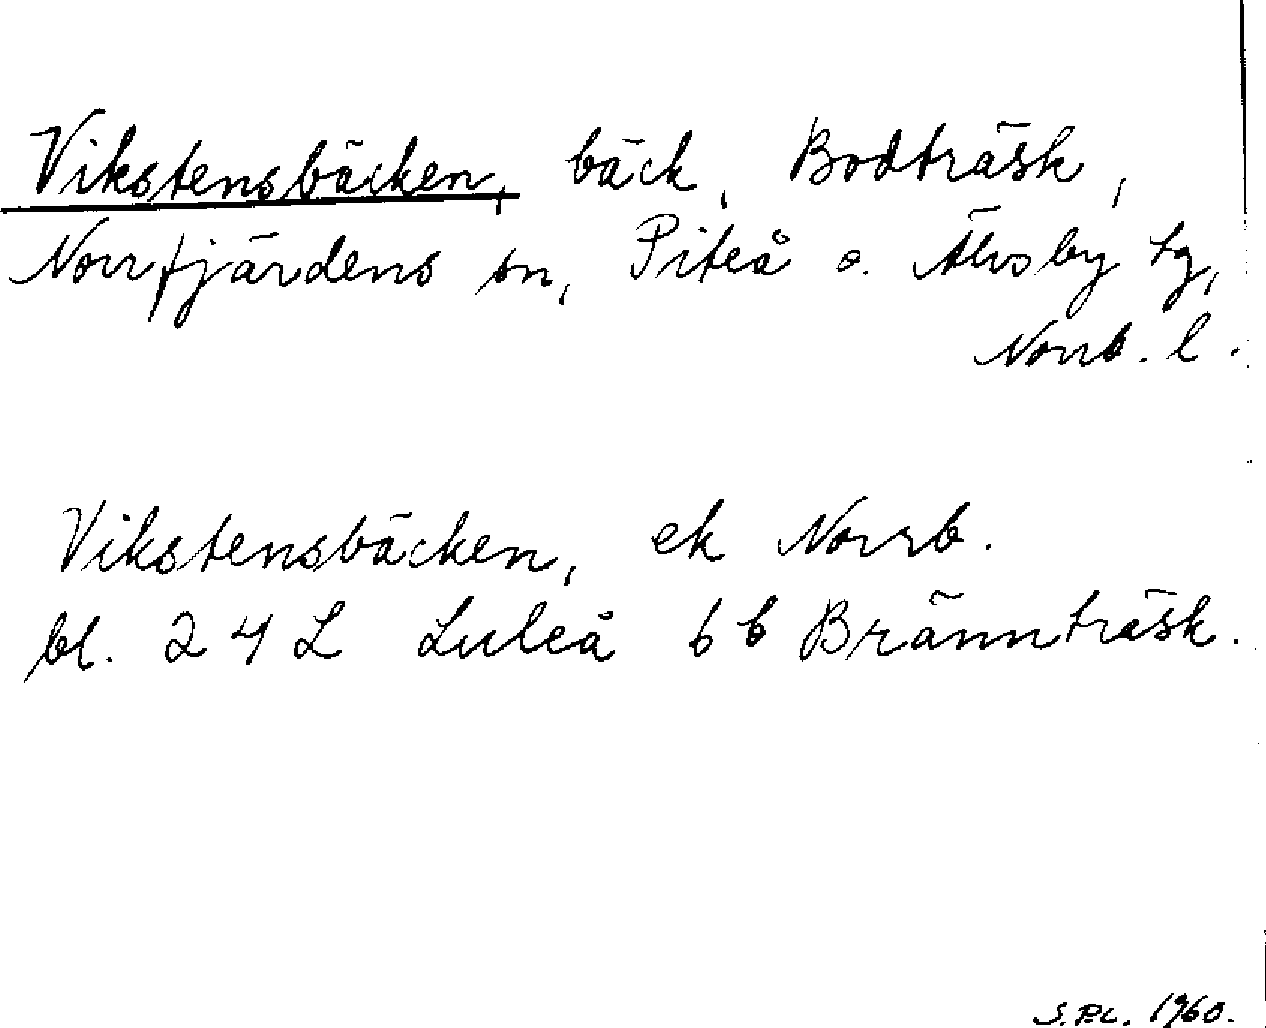 Vikstensbäcken, bäck, Bodträsk,
Norrfjärdens sn, Piteå o. Älvsby tg,
Norrb. l.
Vikstensbäcken, ek Norrb.
bl. 24 L Luleå 6b Brännträsk.
S.P.L. 1960.